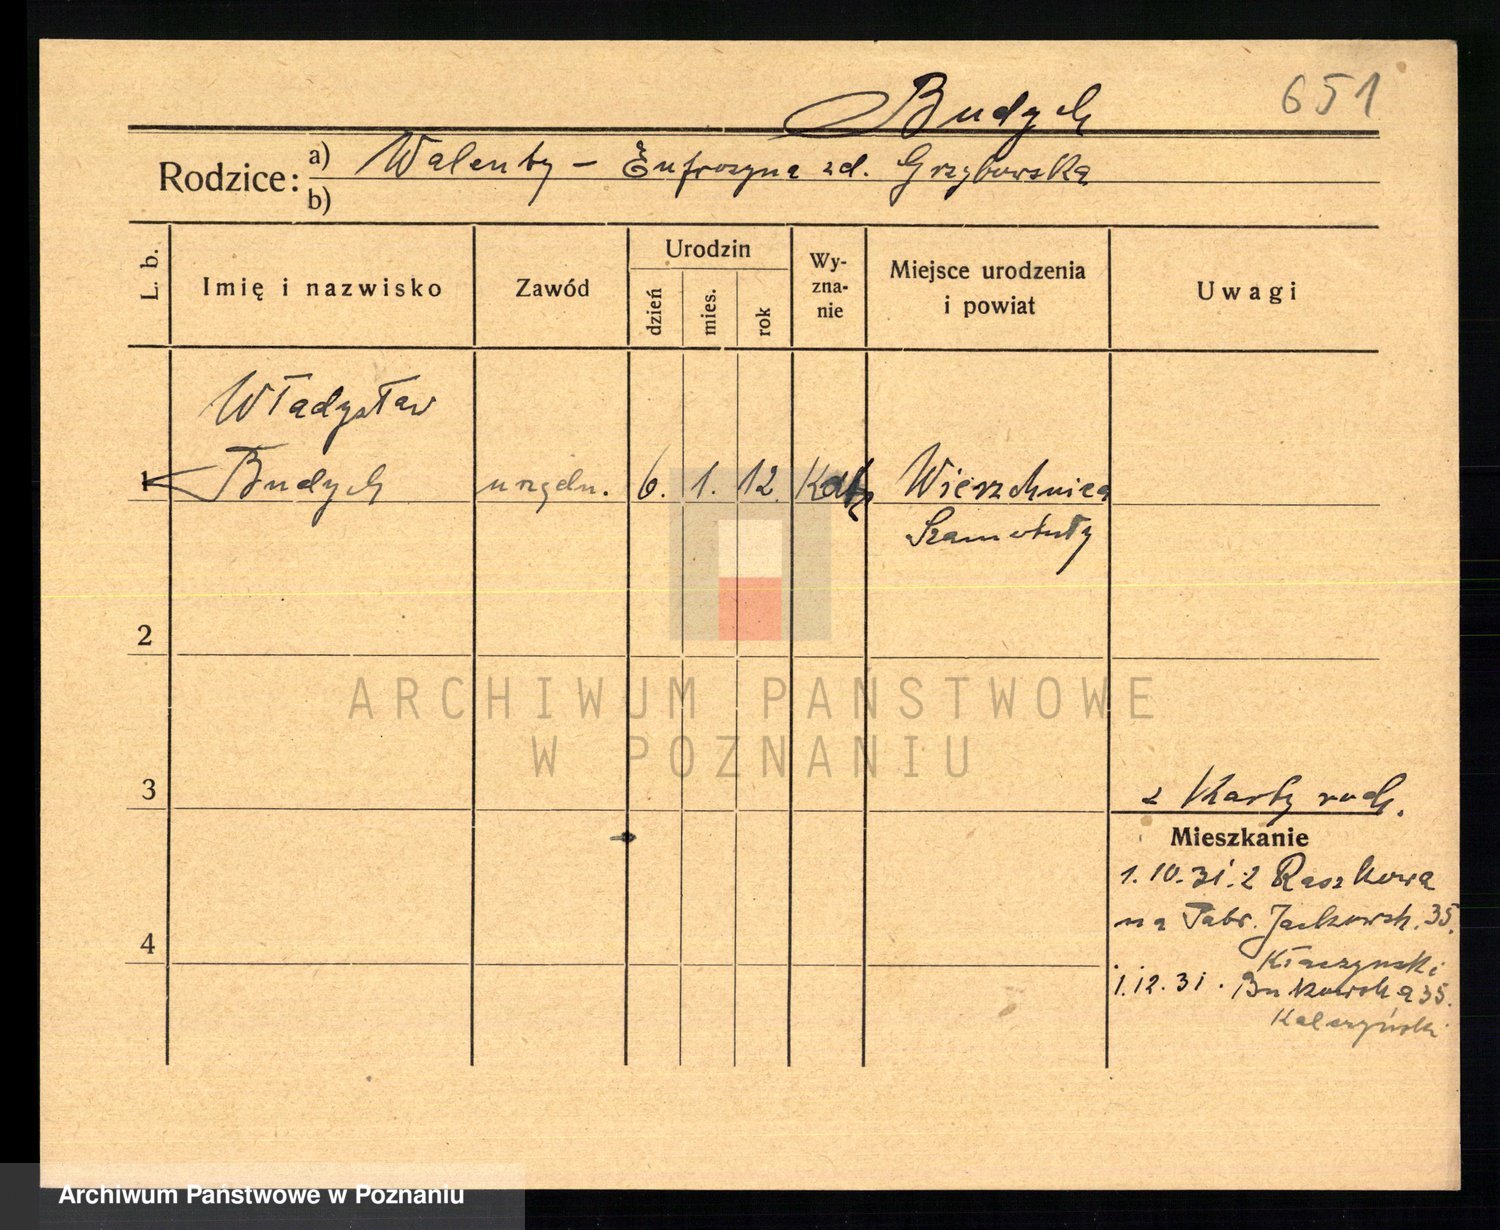 Budych
651
Rodzice:
a) Walenty - Eufrozyna zd. Grzybowska
b)
L. b.
Imię i nazwisko
Zawód
Urodzin
dzień
mies.
rok
Wy-
zna-
nie
Miejsce urodzenia
i powiat
Uwagi
Władysław
1 Budych urzędn. 6. 1. 12. Wierzchnica
Szamotuły
2
3
z Karty rodz.
Mieszkanie
1.10.31. z Raszkowa
na Fabr. Jackowsk. 35.
4
1.12.31. Bukowska 35.
ARCHIWUM PAŃSTWOWE
W POZNANIU
Archiwum Państwowe w Poznaniu